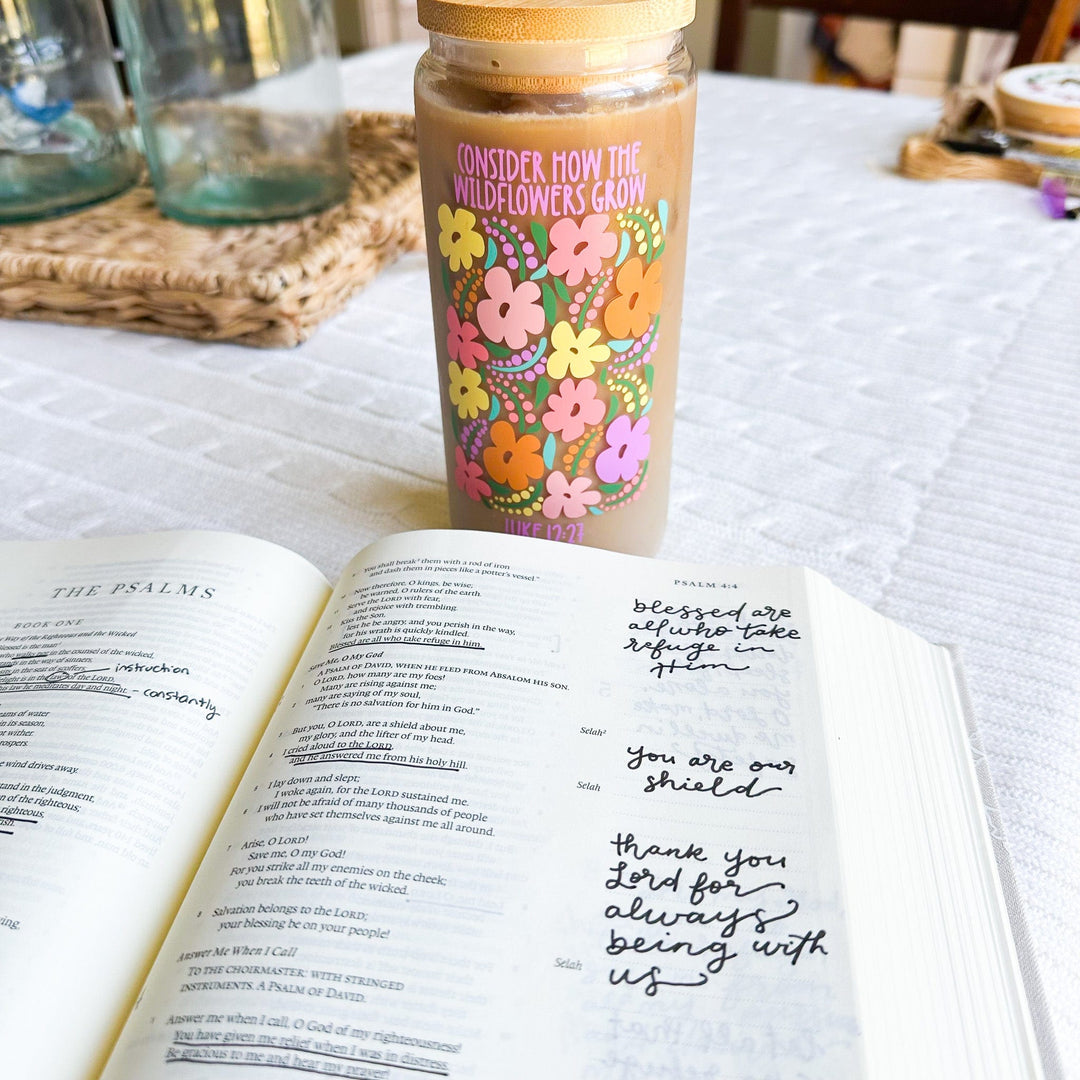 CONSIDER HOW THE
WILDFLOWERS GROW
LUKE 12:27
THE PSALMS
BOOK ONE
Way of the Righteous and the Wicked
blessed is the man
who walks not in the counsel of the wicked,
stands in the way of sinners,
in the seat of scoffers;
instruction
delight is in the law of the LORD,
his law he meditates day and night.
- constantly
streams of water
in its season,
not wither.
prospers.
the wind drives away.
stand in the judgment,
of the righteous;
righteous,
PSALM 4:4
You shall break them with a rod of iron
and dash them in pieces like a potter's vessel."
Now therefore, O kings, be wise;
be warned, O rulers of the earth.
Serve the LORD with fear,
and rejoice with trembling.
Kiss the Son,
lest he be angry, and you perish in the way,
for his wrath is quickly kindled.
Blessed are all who take refuge in him.
Save Me, O My God
A PSALM OF DAVID, WHEN HE FLED FROM ABSALOM HIS SON.
O LORD, how many are my foes!
Many are rising against me;
2 many are saying of my soul,
"There is no salvation for him in God."
Selah²
3 But you, O LORD, are a shield about me,
my glory, and the lifter of my head.
4 I cried aloud to the LORD,
and he answered me from his holy hill.
Selah
5 I lay down and slept;
I woke again, for the LORD sustained me.
6 I will not be afraid of many thousands of people
who have set themselves against me all around.
7 Arise, O LORD!
Save me, O my God!
For you strike all my enemies on the cheek;
you break the teeth of the wicked.
8 Salvation belongs to the LORD;
your blessing be on your people!
Selah
Answer Me When I Call
TO THE CHOIRMASTER: WITH STRINGED
INSTRUMENTS. A PSALM OF DAVID.
1 Answer me when I call, O God of my righteousness!
You have given me relief when I was in distress.
Be gracious to me and hear my prayer!
blessed are
all who take
refuge in
Him
you are our
shield
thank you
Lord for
always
being with
us